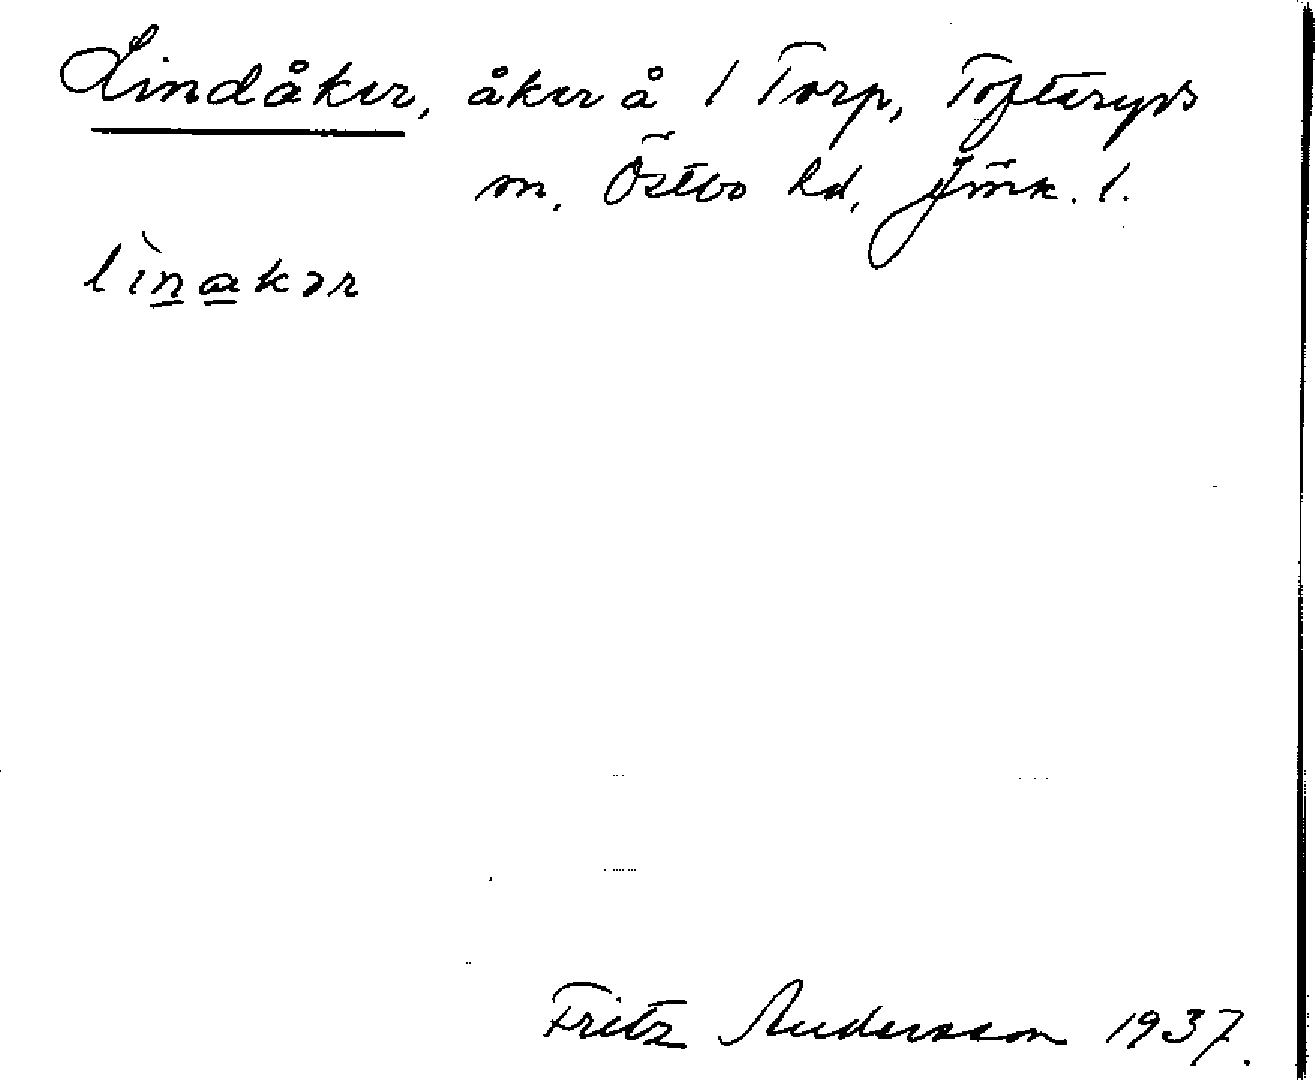 Lindåker, åker å 1 Torp, Tofteryds
sn. Östbo hd, Jönk. l.
lìnakər
Fritz Andersson 1937.